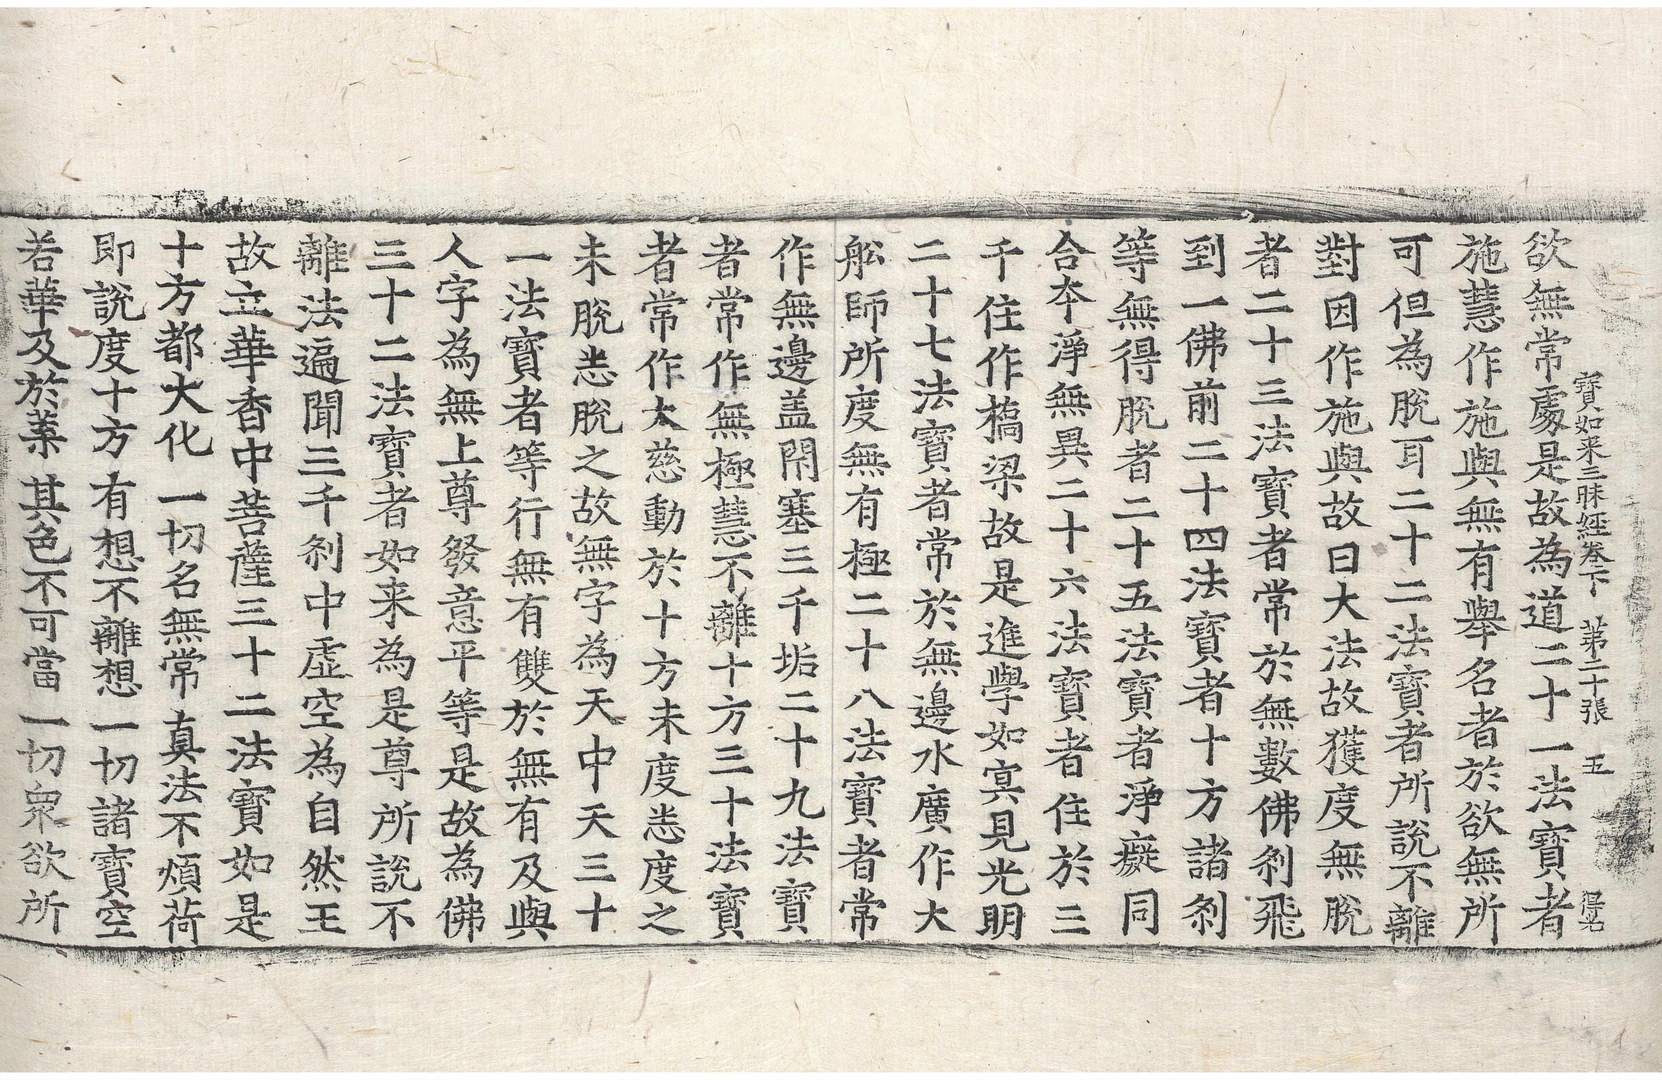 寶如来三昧經卷下　第二十張　五
欲無常處是故為道二十一法寶者
施慧作施與無有舉名者於欲無所
可但為脫耳二十二法寶者所說不離
對因作施與故曰大法故獲度無脫
者二十三法寶者常於無數佛刹飛
到一佛前二十四法寶者十方諸刹
等無得脫者二十五法寶者淨癡同
合本淨無異二十六法寶者住於三
千住作橋梁故是進學如冥見光明
二十七法寶者常於無邊水廣作大
舩師所度無有極二十八法寶者常
作無邊盖閇塞三千垢二十九法寶
者常作無極慧不離十方三十法寶
者常作大慈動於十方未度悉度之
未脫悉脫之故無字為天中天三十
一法寶者等行無有雙於無有及與
人字為無上尊發意平等是故為佛
三十二法寶者如来為是尊所說不
離法遍聞三千刹中虛空為自然王
故立華香中菩薩三十二法寶如是
十方都大化　一切名無常　真法不煩荷
即說度十方　有想不離想　一切諸寶空
若華及於葉　其色不可當　一切衆欲所